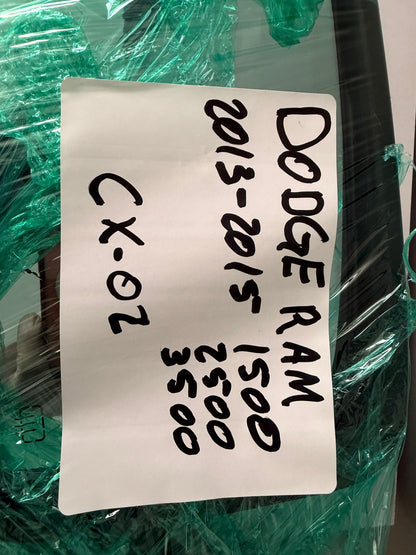 DODGE RAM
2013-2015 1500
2500
3500
CX-02